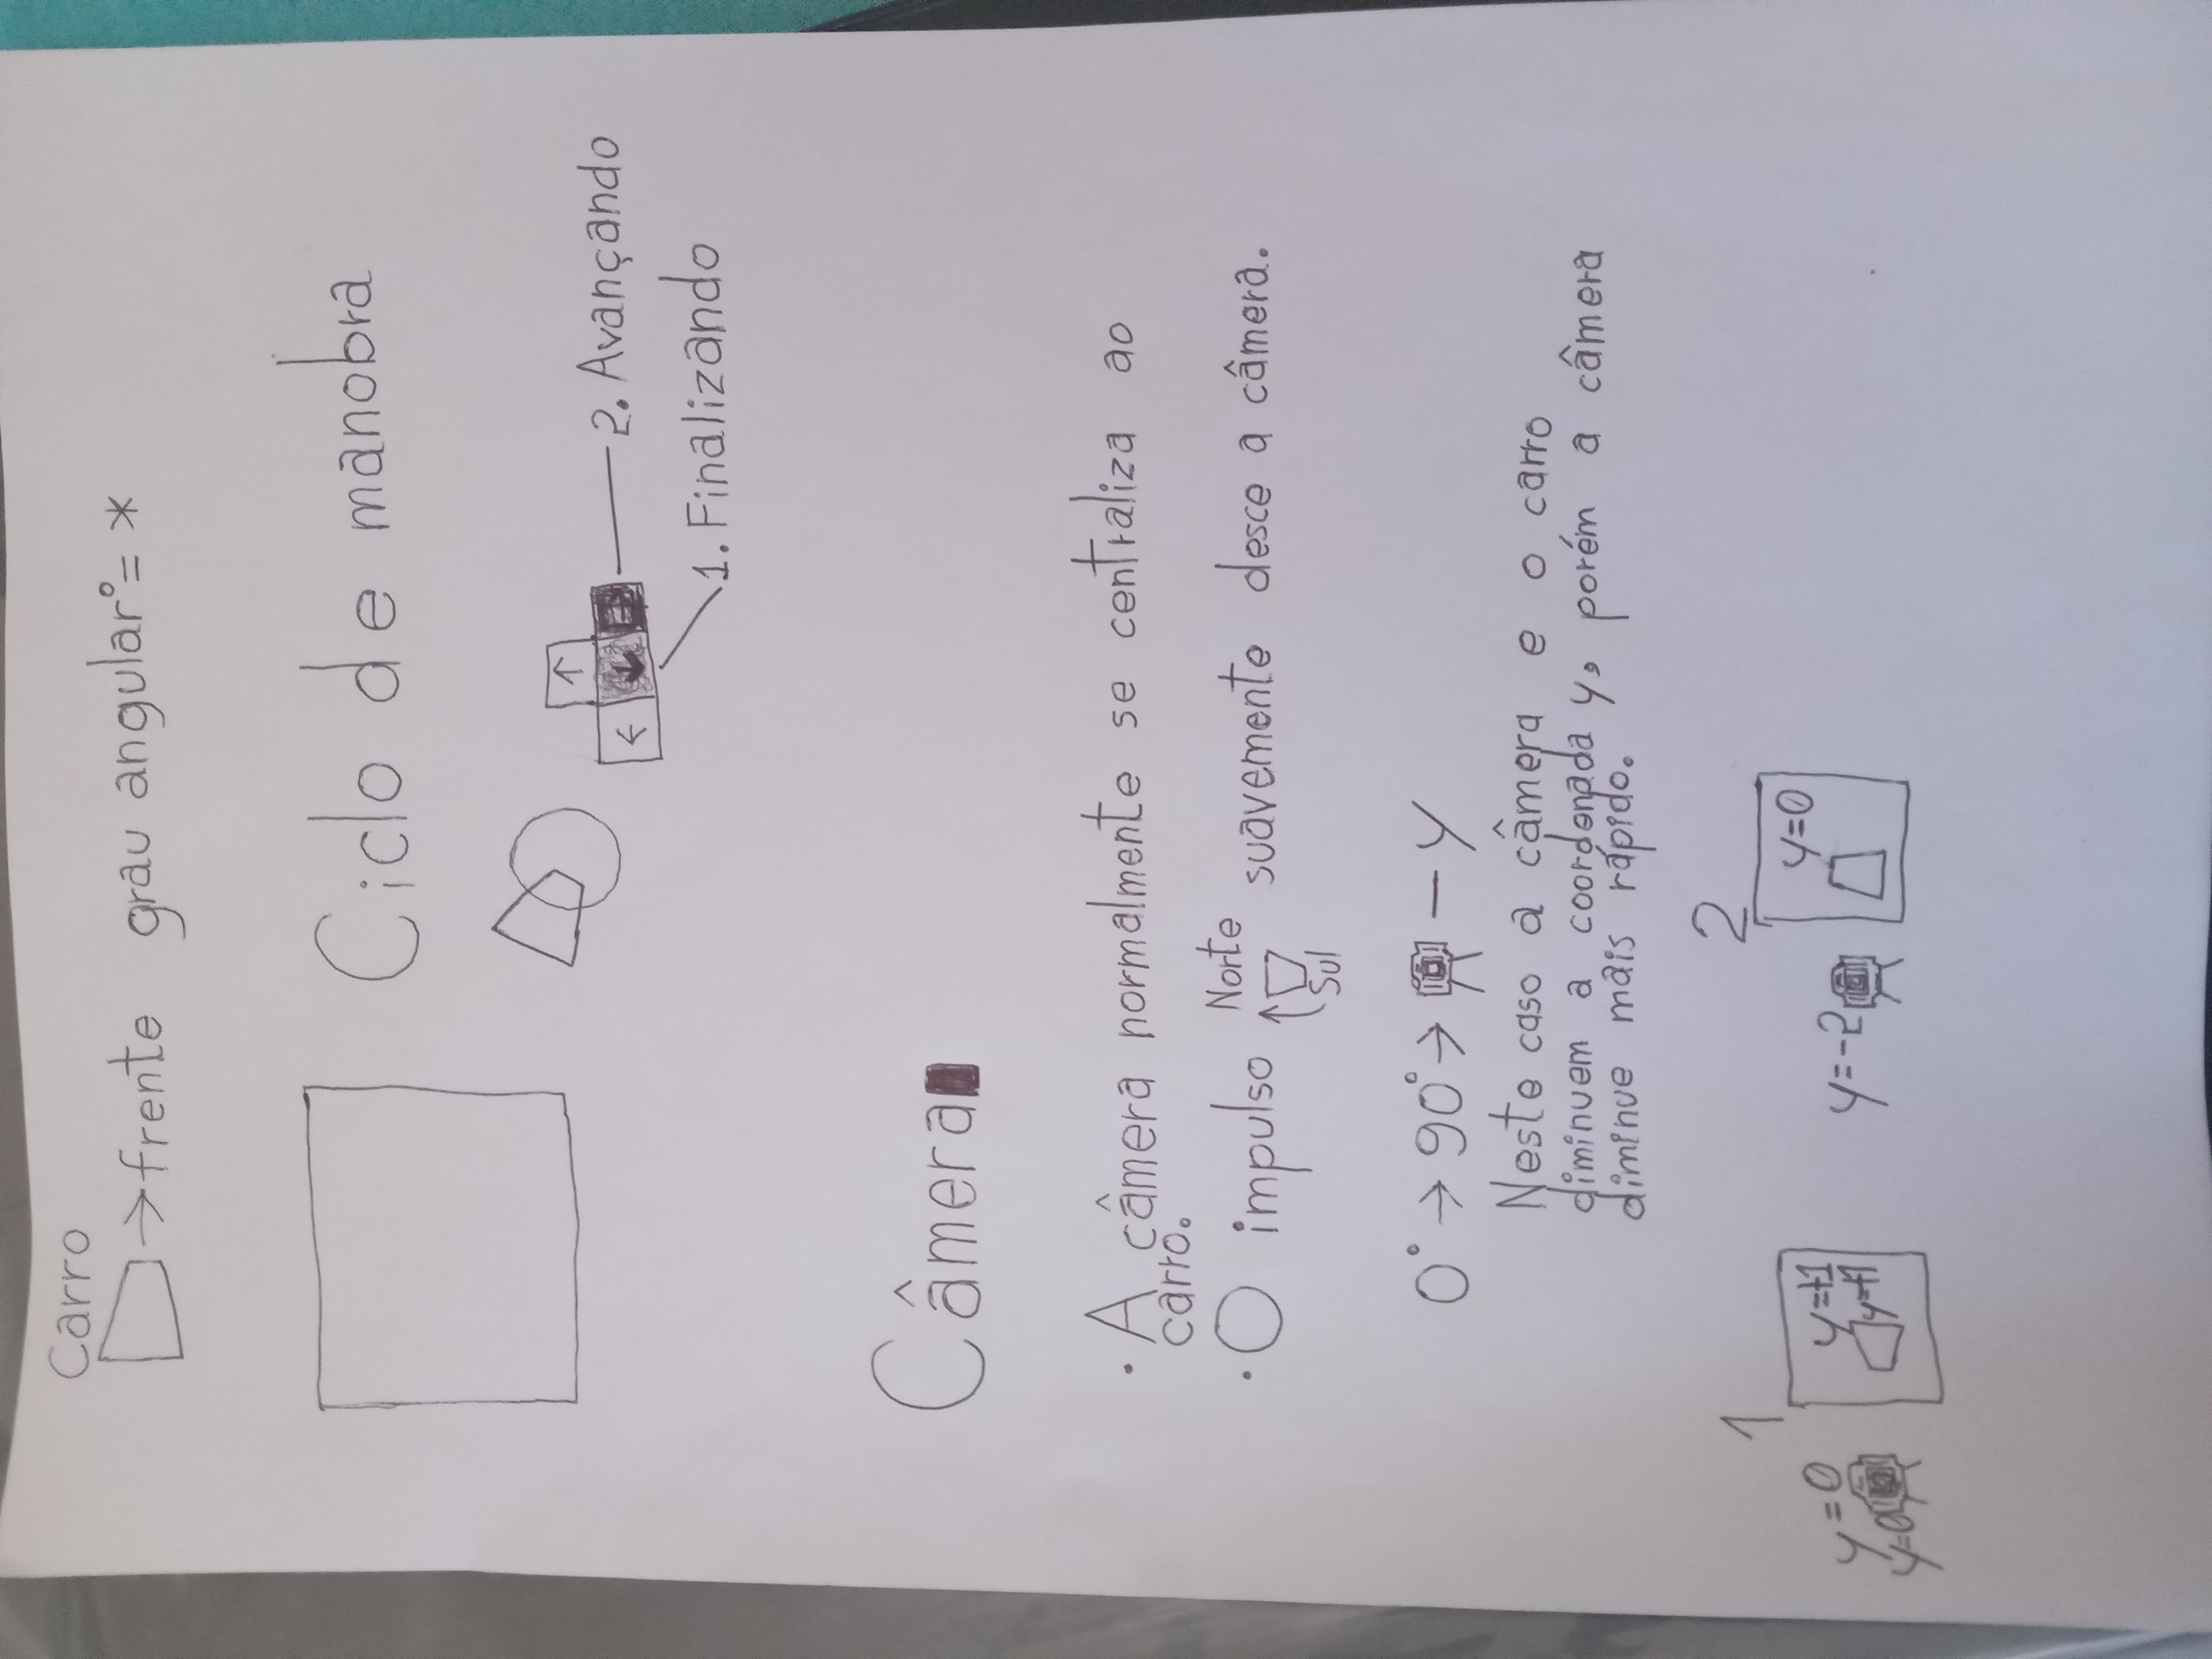 Carro
→ frente grau angular°= *
Ciclo de manobra
↑
← ↓ → 2. Avançando
1. Finalizando
Câmera
· A câmera normalmente se centraliza ao
carro.
Norte
· O impulso ↑ suavemente desce a câmera.
Sul
0° → 90° → - y
Neste caso a câmera e o carro
diminuem a coordenada y, porém a câmera
diminue mais rápido.
1
y=0
y=0
y=+1
y=+1
2
y=-2
y=0